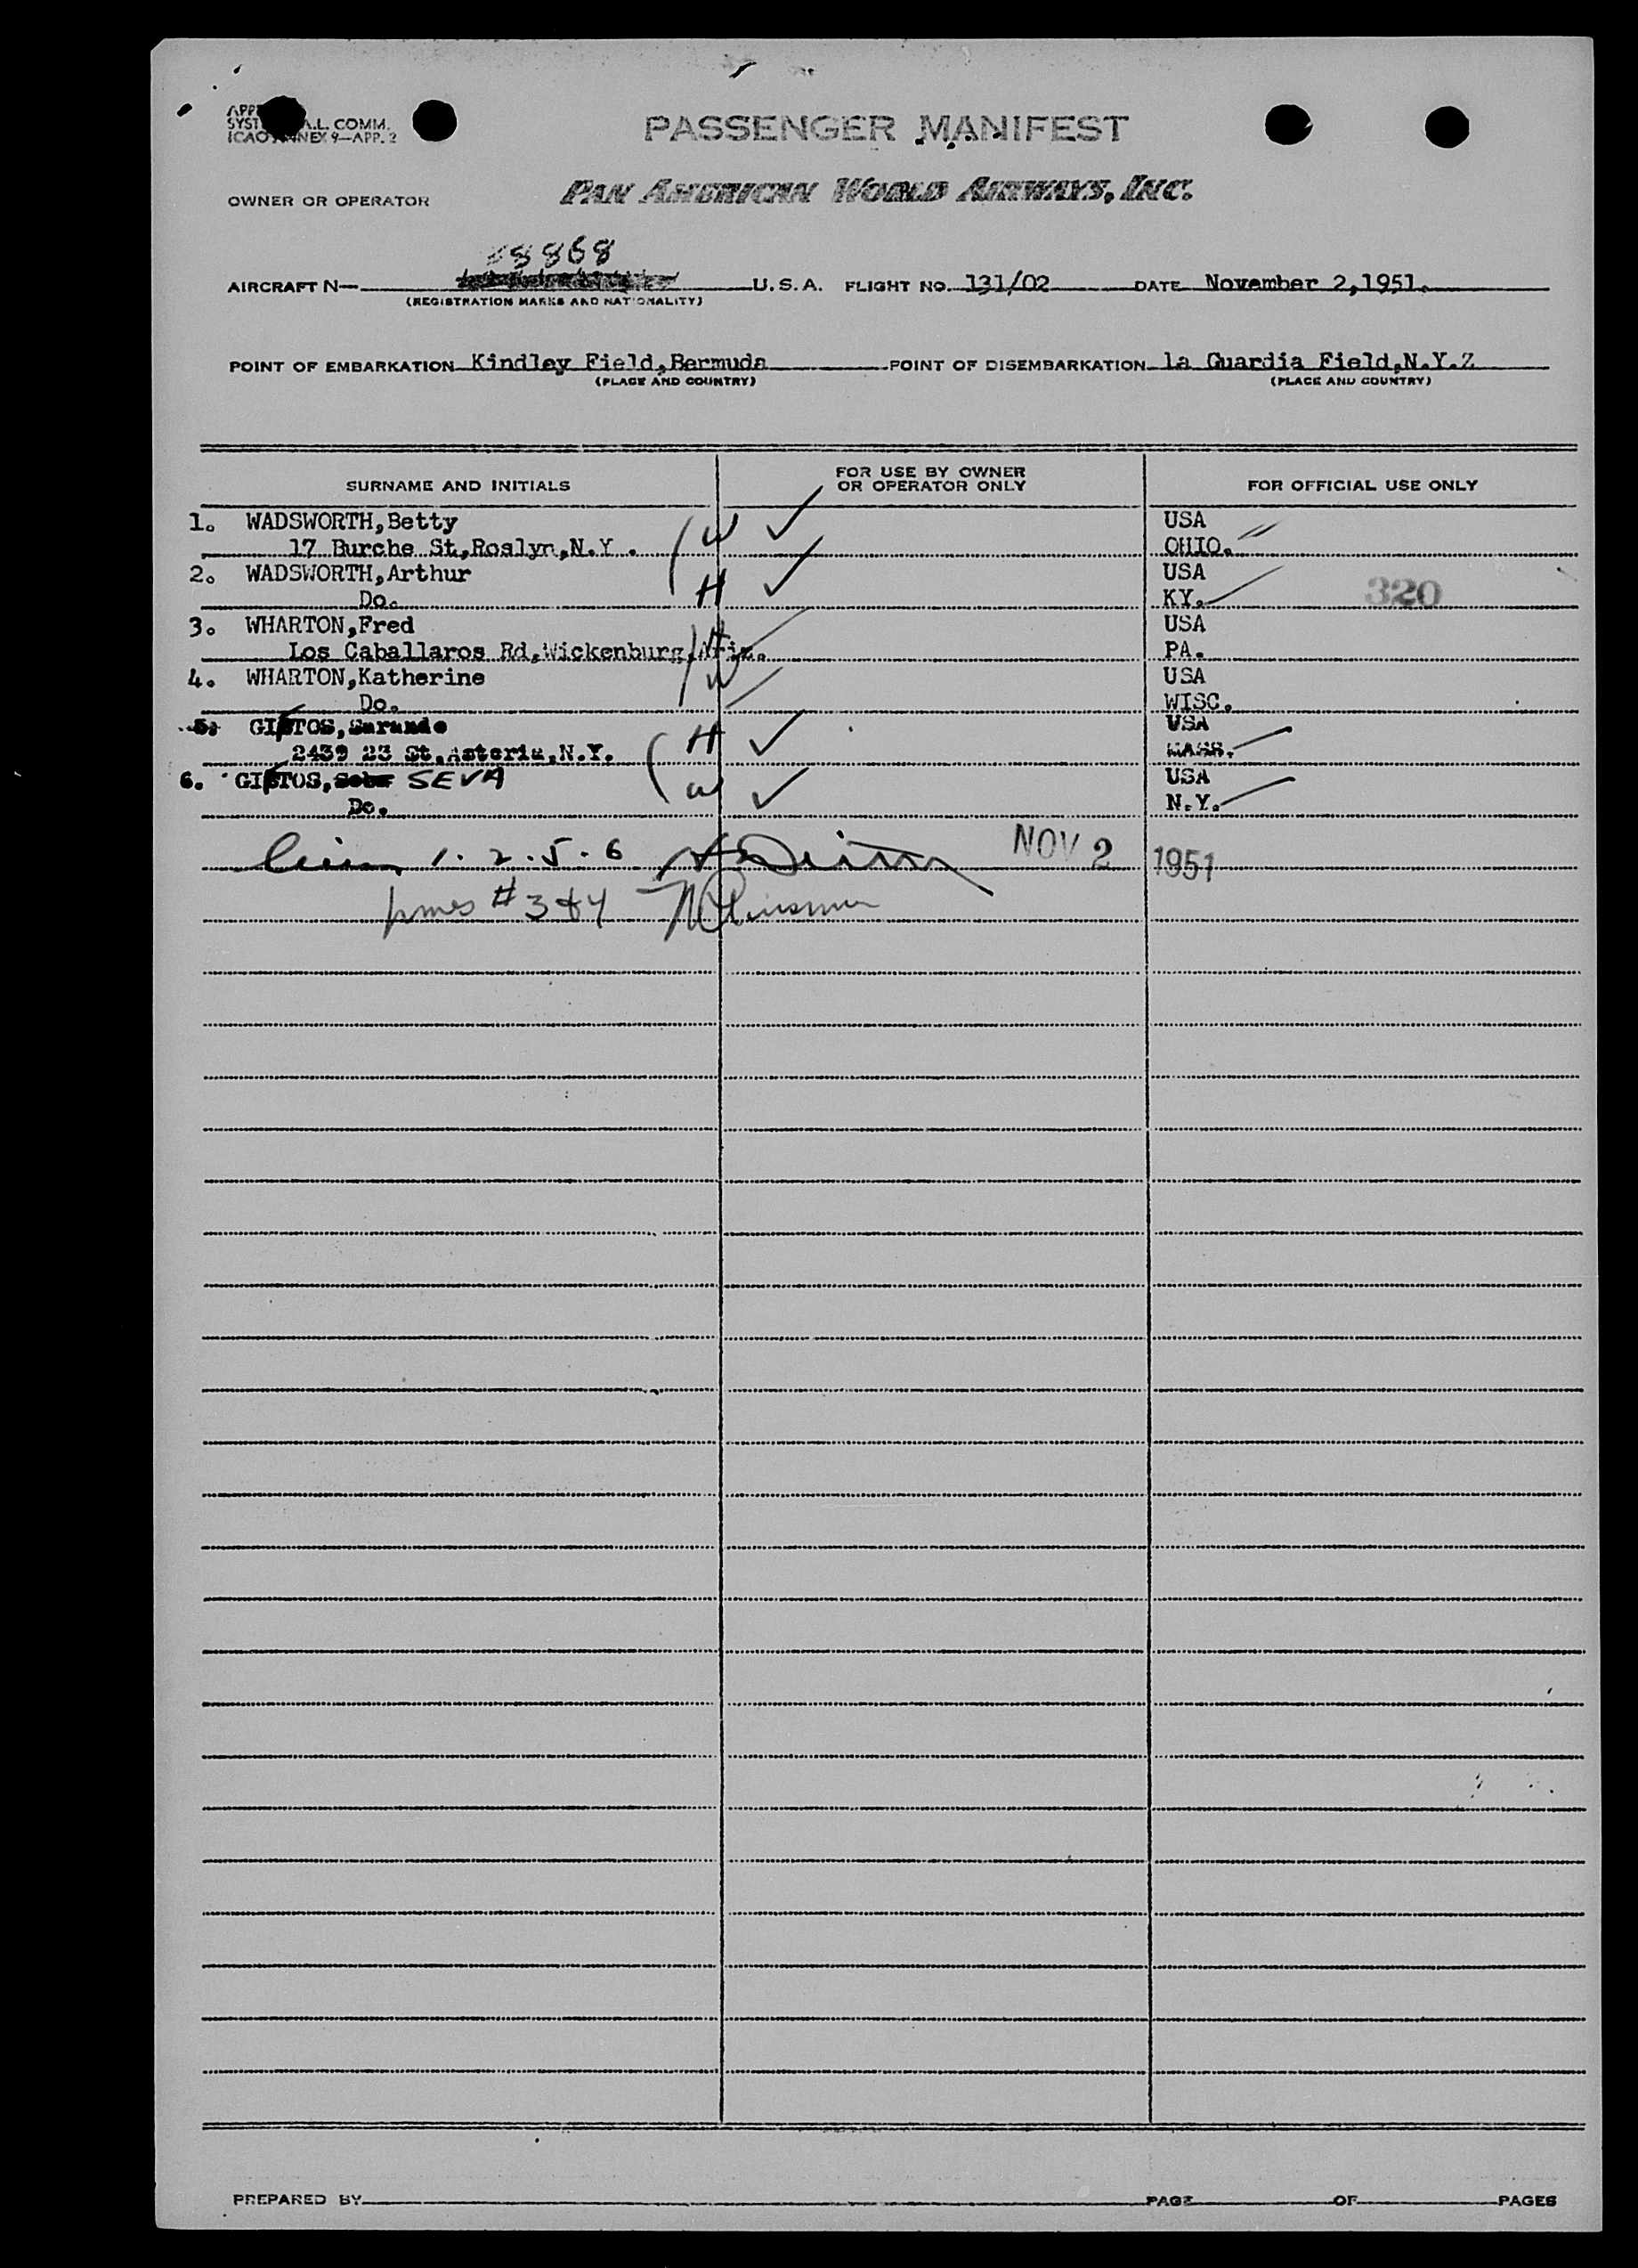 SYST A.L. COMM.
ICAO ANNEX 9—APP. 2
PASSENGER MANIFEST
OWNER OR OPERATOR PAN AMERICAN WORLD AIRWAYS, INC.
8868
AIRCRAFT N— U.S.A. FLIGHT NO. 131/02 DATE November 2,1951.
(REGISTRATION MARKS AND NATIONALITY)
POINT OF EMBARKATION Kindley Field,Bermuda POINT OF DISEMBARKATION la Guardia Field,N.Y.Z
(PLACE AND COUNTRY) (PLACE AND COUNTRY)
SURNAME AND INITIALS FOR USE BY OWNER OR OPERATOR ONLY FOR OFFICIAL USE ONLY
1. WADSWORTH,Betty W USA
17 Burche St,Roslyn,N.Y. OHIO.
2. WADSWORTH,Arthur H USA
Do. KY. 320
3. WHARTON,Fred H USA
Los Caballaros Rd,Wickenburg,Ariz. PA.
4. WHARTON,Katherine W USA
Do. WISC.
5. GISTOS,Sarando H USA
2439 23 St,Astoria,N.Y. MASS.
6. GISTOS, SEVA W USA
Do. N.Y.
1. 2. 5. 6 NOV 2 1951
#3&4
PREPARED BY PAGE OF PAGES